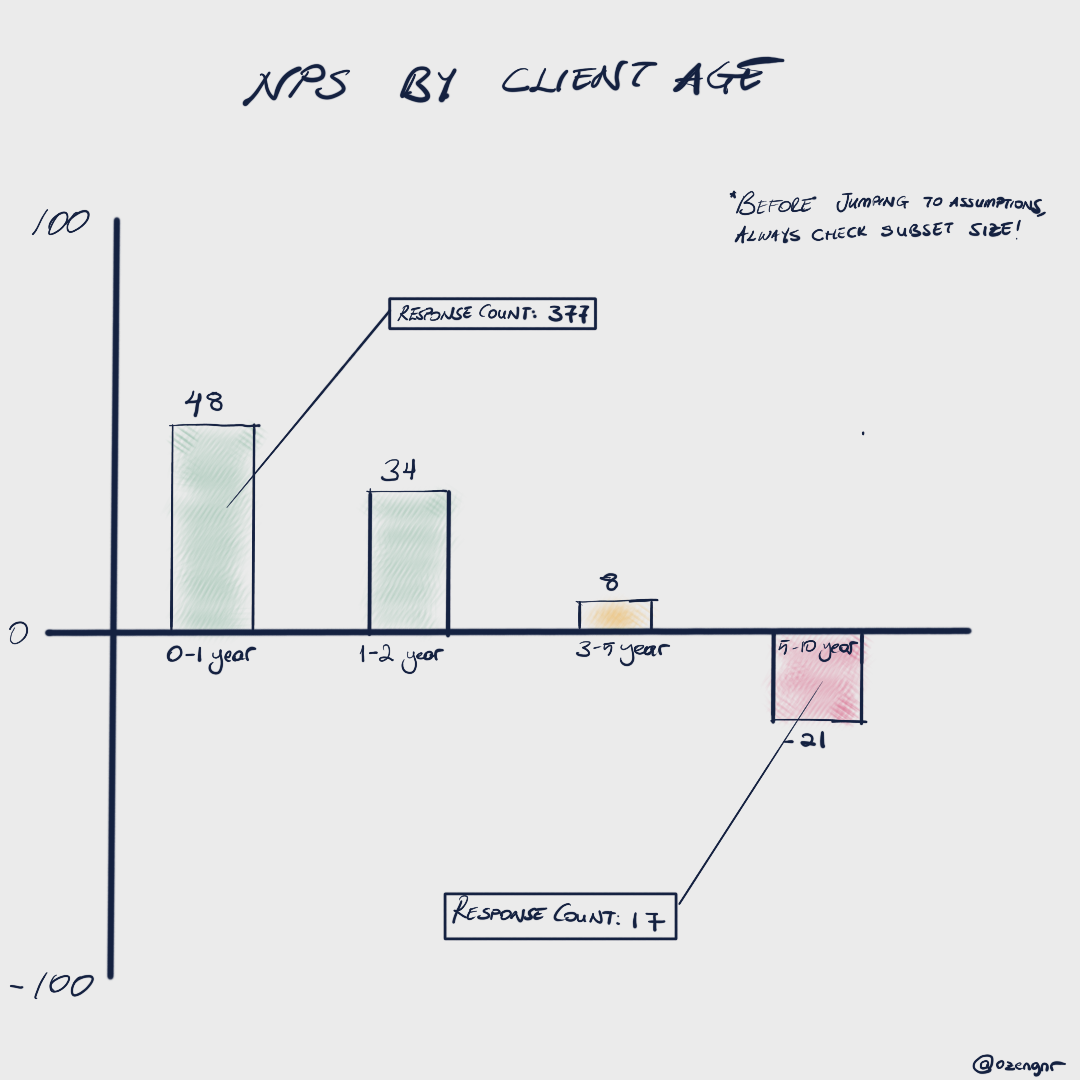 NPS BY CLIENT AGE
*BEFORE JUMPING TO ASSUMPTIONS,
ALWAYS CHECK SUBSET SIZE!
100
RESPONSE COUNT: 377
48
34
8
0
0-1 year
1-2 year
3-5 year
5-10 year
-21
RESPONSE COUNT: 17
-100
@ozengnr